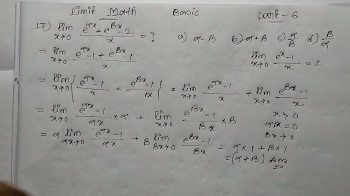 Limit Math Basic part-6
17) lim x→0 (e^αx + e^βx - 2)/x = ? a) α-β b) α+β c) α/β d) β/α
= lim x→0 (e^αx - 1 + e^βx - 1)/x lim x→0 (e^x - 1)/x = 1
= lim x→0 { (e^αx - 1)/x + (e^βx - 1)/x } = lim x→0 (e^αx - 1)/x + lim x→0 (e^βx - 1)/x
= lim x→0 (e^αx - 1)/αx × α + lim x→0 (e^βx - 1)/βx × β x→0
= α lim αx→0 (e^αx - 1)/αx + β lim βx→0 (e^βx - 1)/βx = α×1 + β×1 βx→0
= (α+β) Ans